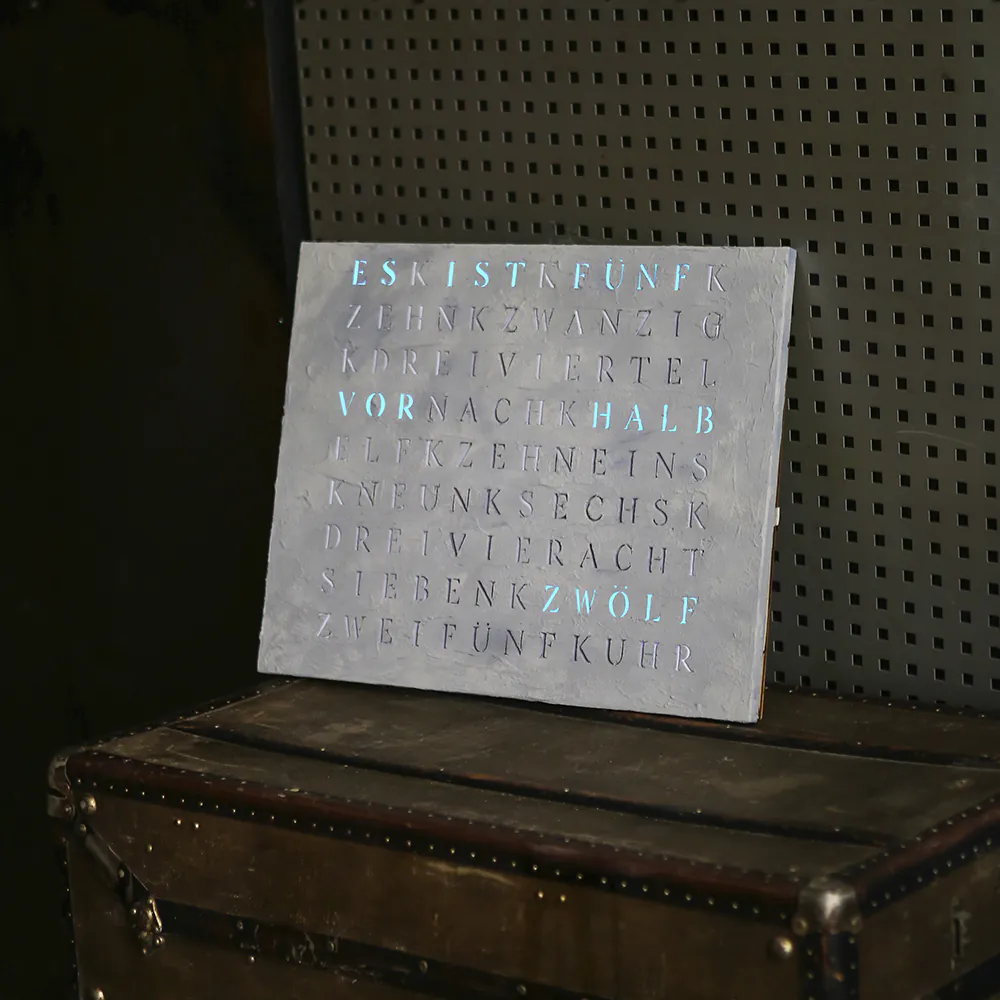 ESKISTKFÜNFK
ZEHNKZWANZIG
KDREIVIERTEL
VORNACHKHALB
ELFKZEHNEINS
KNEUNKSECHSK
DREIVIERACHT
SIEBENKZWÖLF
ZWEIFÜNFKUHR